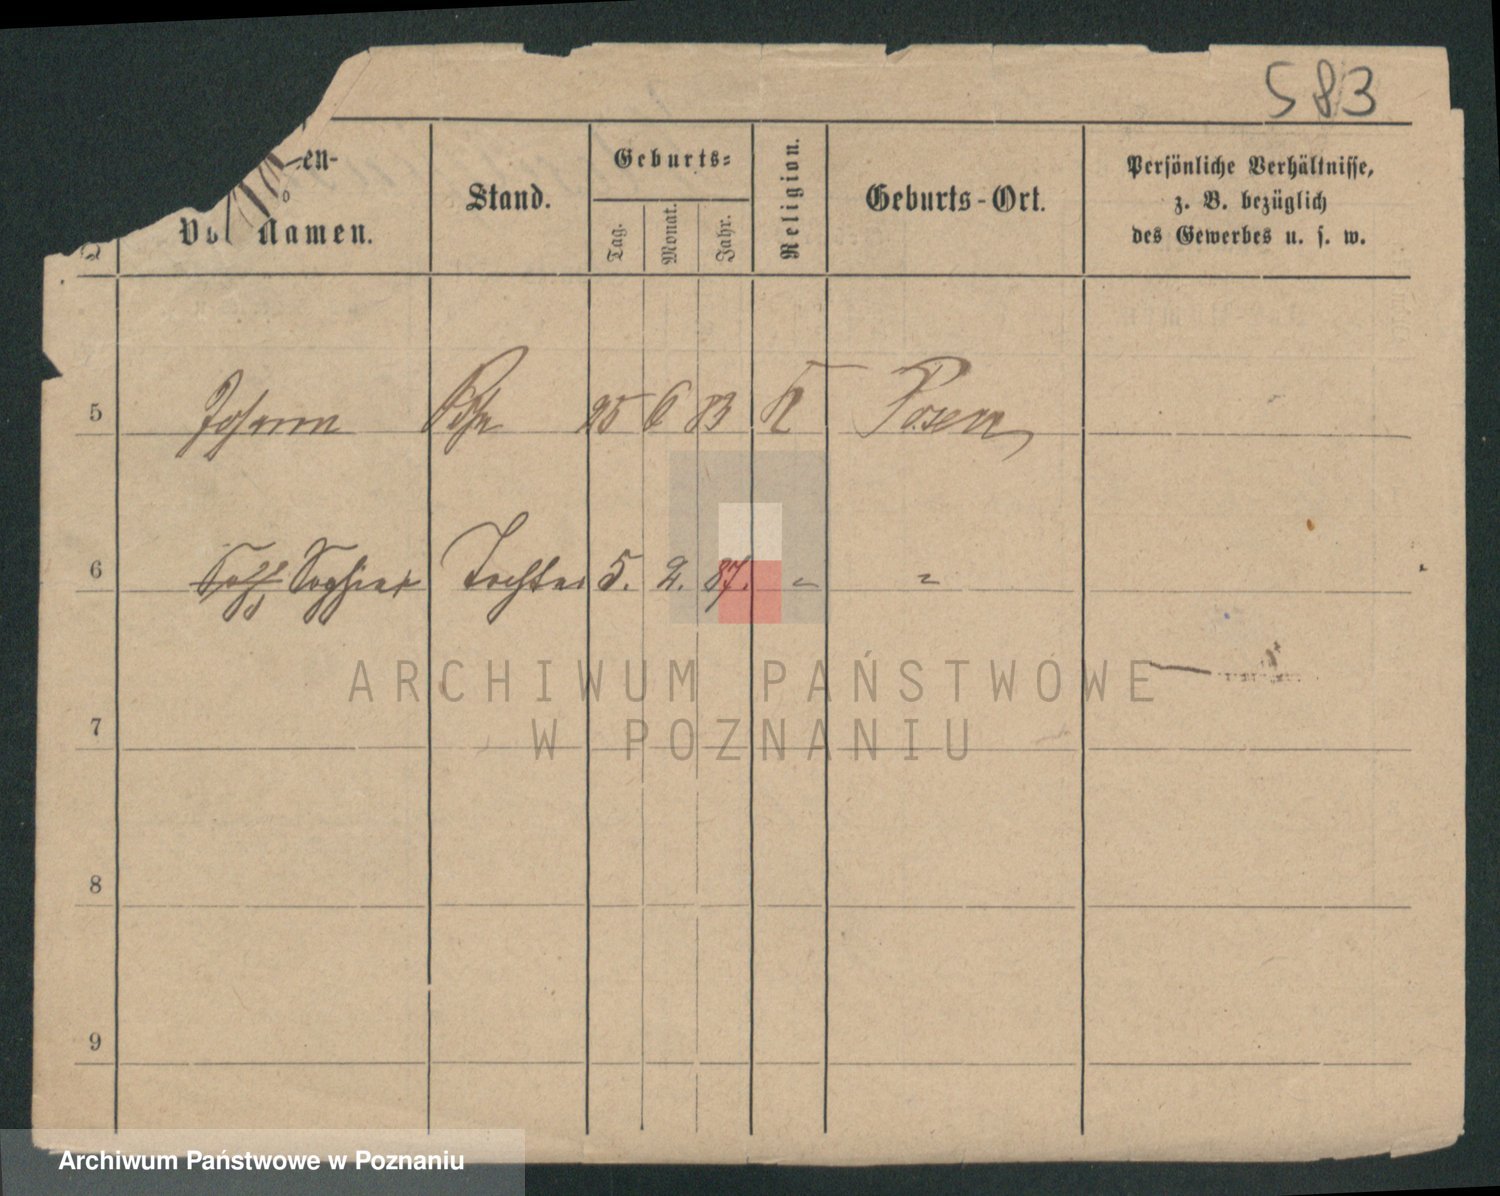 583
en-
Vo Namen.
Stand.
Geburts=
Tag.
Monat.
Jahr.
Religion.
Geburts-Ort.
Persönliche Verhältnisse,
z. B. bezüglich
des Gewerbes u. s. w.
5 Johann 25 6 83 K Posen
6 Sophie Tochter 5. 2. 87. " "
7
8
9
ARCHIWUM PAŃSTWOWE
W POZNANIU
Archiwum Państwowe w Poznaniu